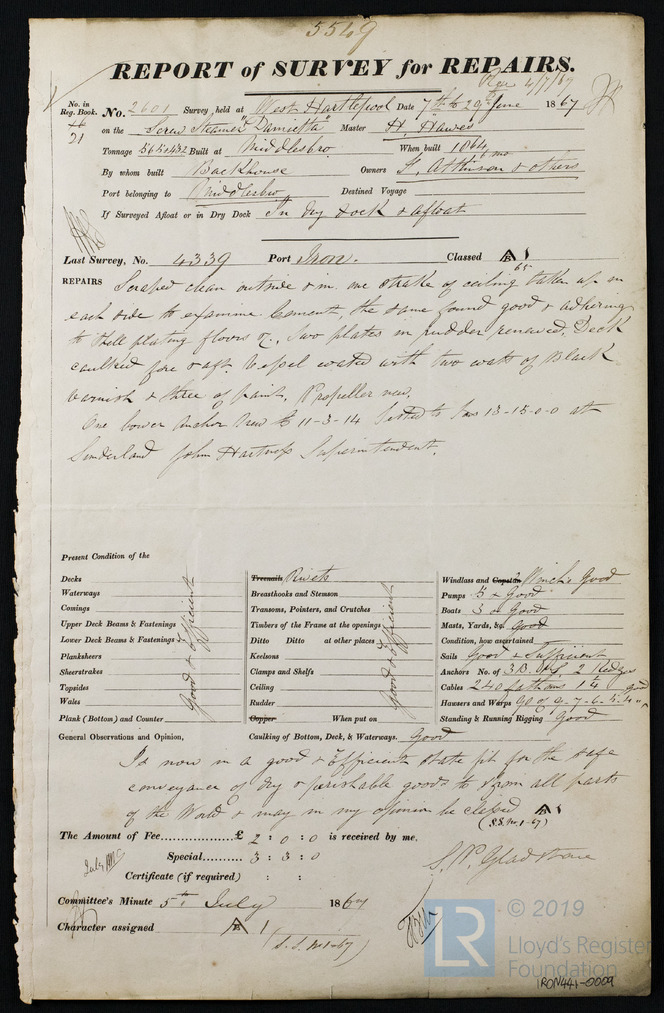 5549
REPORT of SURVEY for REPAIRS.
Rec 4/7/67
No. in Reg. Book. No. 2601 Survey, held at West Hartlepool Date 7th to 29th June 1867
21 on the Screw Steamer "Damietta" Master H. Hawes
Tonnage Built at Middlesbro When built 1864
By whom built Backhouse Owners Atkinson & others
Port belonging to Middlesbro Destined Voyage
If Surveyed Afloat or in Dry Dock In dry dock & afloat
Last Survey, No. 4339 Port Iron. Classed A 1
65
REPAIRS Scraped clean outside & in. one strake of ceiling taken up on
each side to examine Cement, the same found good & adhering
to shell plating floors &c., Two plates in rudder renewed. Deck
caulked fore & aft. Vessel coated with two coats of Black
Varnish & three of paint. Propeller new.
One bower Anchor New 11-3-14 Tested to 13-15-0-0 at
Sunderland John Hartness Superintendent.
Present Condition of the
Decks
Waterways
Comings
Upper Deck Beams & Fastenings
Lower Deck Beams & Fastenings
Planksheers
Sheerstrakes
Topsides
Wales
Plank (Bottom) and Counter
Good & Efficient
Treenails Rivets
Breasthooks and Stemson
Transoms, Pointers, and Crutches
Timbers of the Frame at the openings
Ditto Ditto at other places
Keelsons
Clamps and Shelfs
Ceiling
Rudder
Copper When put on
Caulking of Bottom, Deck, & Waterways. Good
Good & Efficient
Windlass and Capstan Winch Good
Pumps 5 & Good
Boats 3 Good
Masts, Yards, &c. Good
Condition, how ascertained
Sails Good & Sufficient
Anchors No. of 3 B. 1 S. 2 Kedges
Cables 240 fathoms 1 1/4 good
Hawsers and Warps 90 of 9-7-6-5-4
Standing & Running Rigging Good
General Observations and Opinion,
Is now in a good & Efficient state fit for the safe
conveyance of dry & perishable goods to & from all parts
of the World & may in my opinion be classed A 1
(S.S. No. 1-67)
The Amount of Fee £ 2 : 0 : 0 is received by me,
Special 3 : 3 : 0
Certificate (if required) : :
S. P. Gladstone
Committee's Minute 5th July 1867
Character assigned A 1
(S.S. No 1-67)
LR © 2019
Lloyd's Register
Foundation
IRON441-0009